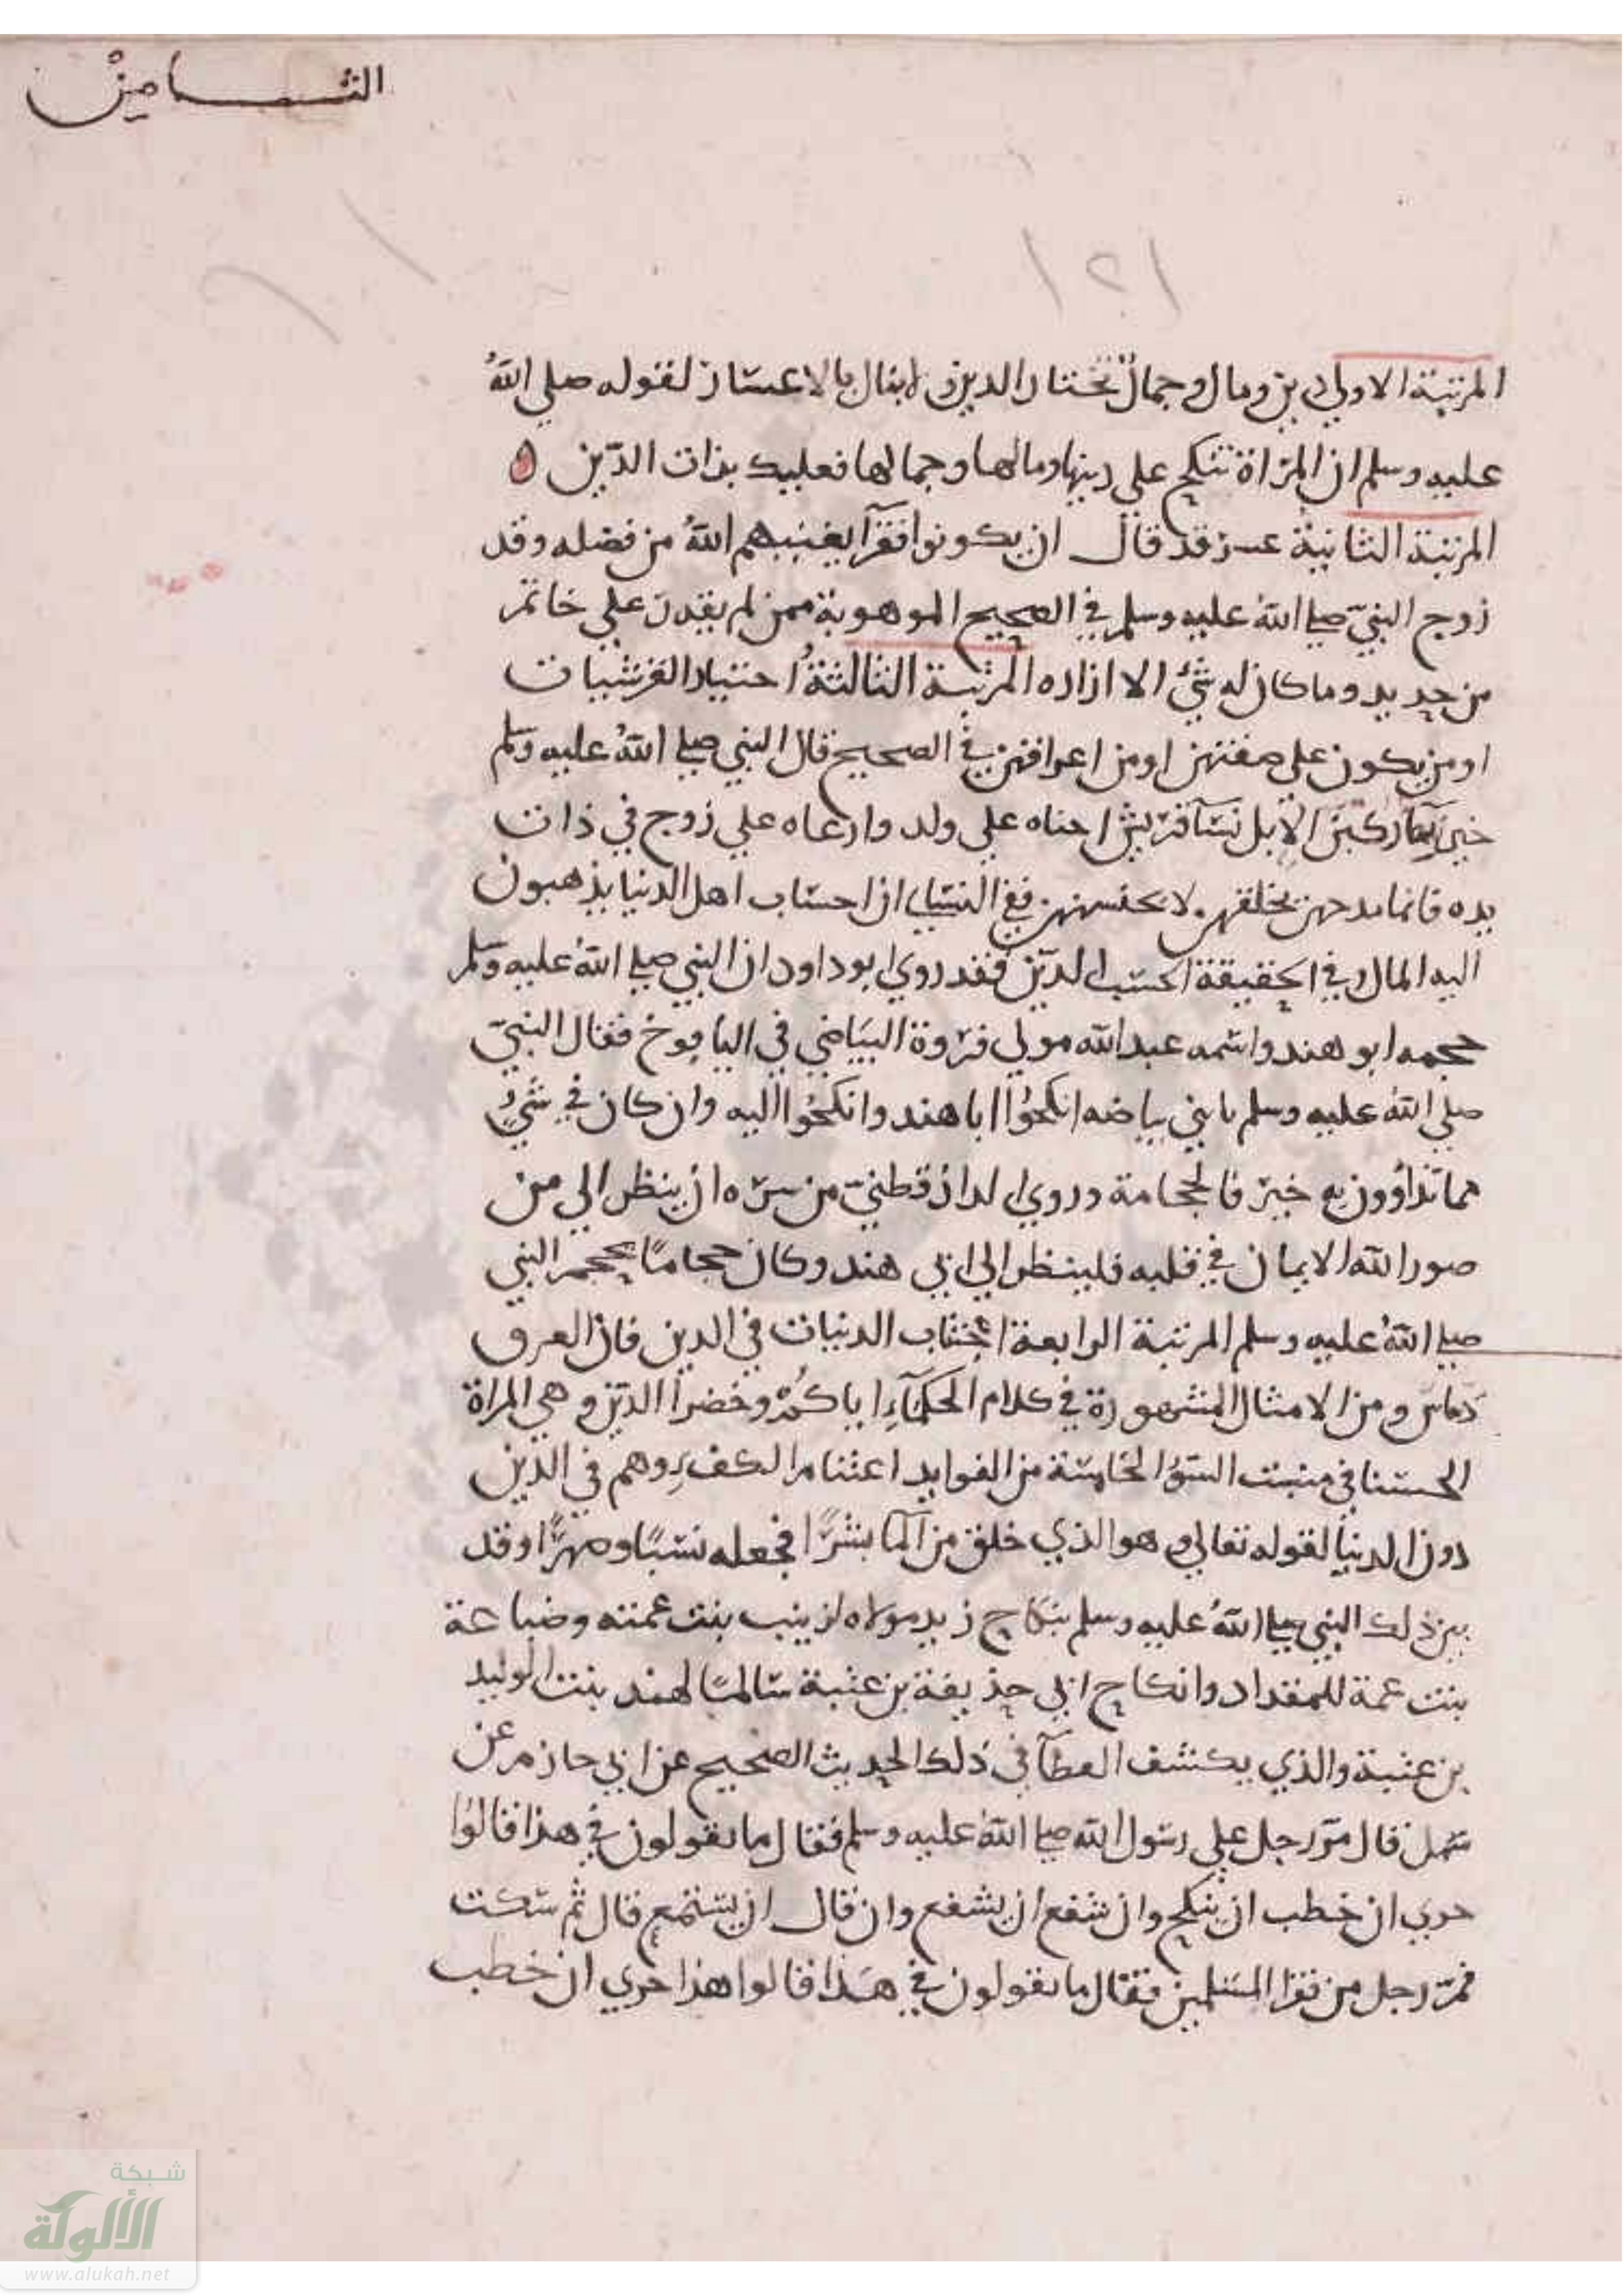 الثامن
١٢١
المرتبة الاولي دين ومال وجمال تختار الدين ولا يبال بالاعسار لقوله صلي الله
عليه وسلم ان المراة تنكح علي دينها ومالها وجمالها فعليك بذات الدين ه
المرتبة الثانية عسر قد قال ان يكونوا فقرآ يغنيهم الله من فضله وقد
زوج النبي صلي الله عليه وسلم في الصحيح الموهوبة ممن لم يقدر علي خاتم
من حديد وما كان له شئ الا ازاره المرتبة الثالثة اختيار القرشيات
او من يكون علي صفتهن او من اعراقهن في الصحيح قال النبي صلي الله عليه وسلم
خير نسآ ركبن الابل نسآ قريش احناه علي ولد وارعاه علي زوج في ذات
يده فانما مدحهن بخلقهن لا بجنسهن ففي النسايي ان احساب اهل الدنيا يذهبون
اليه المال وفي الحقيقة الحسب الدين فقد روي ابو داود ان النبي صلي الله عليه وسلم
حجمه ابو هند واسمه عبد الله مولي فروة البياضي في اليافوخ فقال النبي
صلي الله عليه وسلم يا بني بياضه انكحوا ابا هند وانكحوا اليه وان كان في شيء
مما تداوون به خير فالحجامة وروي الدارقطني من سره ان ينظر الي من
صور الله الايمان في قلبه فلينظر الي ابي هند وكان حجاما يحجم النبي
صلي الله عليه وسلم المرتبة الرابعة اجتناب الدنيات في الدين فان العرق
دساس ومن الامثال المشهورة في كلام الحكمآء اياكم وخضرا الدمن وهي المراة
الحسنا في منبت السوء الخامسة من الفوايد اعتنام الكفء وهم في الدين
دون الدنيا لقوله تعالي وهو الذي خلق من المآ بشرا فجعله نسبا وصهرا وقد
بين ذلك النبي صلي الله عليه وسلم بنكاح زيد مولاه لزينب بنت عمته وضباعة
بنت عمة للمقداد وانكاح ابي حذيفة بن عتبة سالما لهند بنت الوليد
بن عتبة والذي يكشف الغطآ في ذلك الحديث الصحيح عن ابي حازم عن
سهل قال مر رجل علي رسول الله صلي الله عليه وسلم فقال ما تقولون في هذا قالوا
حري ان خطب ان ينكح وان شفع ان يشفع وان قال ان يستمع قال ثم سكت
فمر رجل من فقرا المسلمين فقال ما تقولون في هذا قالوا هذا حري ان خطب
شبكة
الألوكة
www.alukah.net